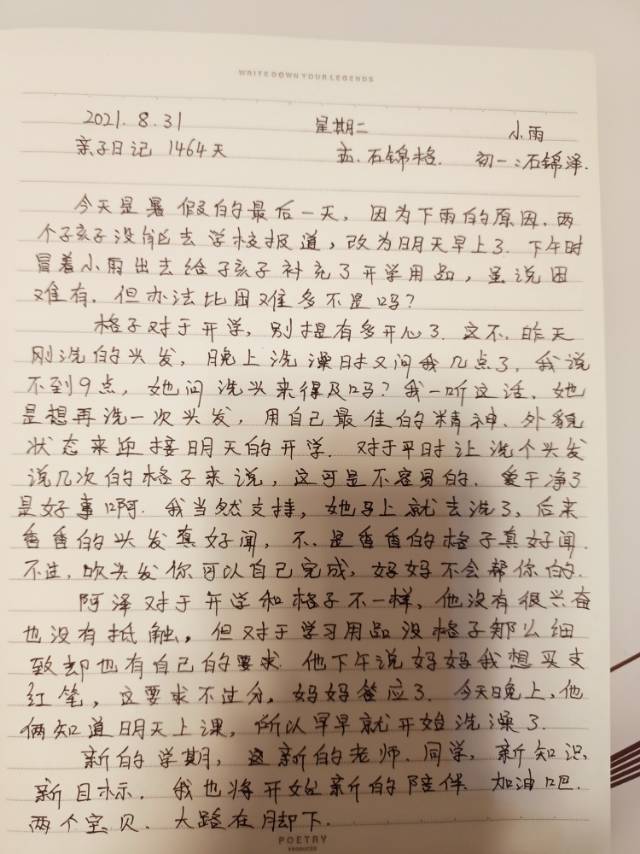 WRITE DOWN YOUR LEGENDS
2021.8.31 星期二 小雨
亲子日记 1464天 石锦格. 初一:石锦泽.
今天是暑假的最后一天,因为下雨的原因,两
个孩子没能去学校报道,改为明天早上了.下午时
冒着小雨出去给孩子补充了开学用品,虽说困
难有,但办法比困难多不是吗?
格子对于开学,别提有多开心了.这不,昨天
刚洗的头发,晚上洗澡时又问我几点了,我说
不到9点,她问洗头来得及吗?我一听这话,她
是想再洗一次头发,用自己最佳的精神、外貌
状态来迎接明天的开学.对于平时让洗个头发
说几次的格子来说,这可是不容易的.爱干净了
是好事啊.我当然支持,她马上就去洗了,后来
香香的头发真好闻,不,是香香的格子真好闻.
不过,吹头发你可以自己完成,妈妈不会帮你的.
阿泽对于开学和格子不一样,他没有很兴奋
也没有抵触,但对于学习用品没格子那么细
致却也有自己的要求.他下午说妈妈我想买支
红笔,这要求不过分,妈妈答应了.今天晚上,他
俩知道明天上课,所以早早就开始洗澡了.
新的学期,新的老师、同学,新知识,
新目标.我也将开始新的陪伴.加油吧.
两个宝贝.大路在脚下.
POETRY
PRODUCER